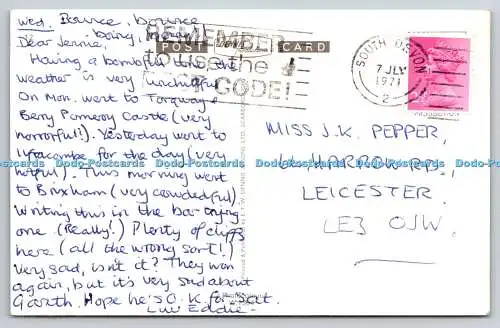 Wed. Bounce, bounce,
boing, boing
Dear Jennie,
Having a bombful time the
weather is very
On Mon. went to Torquay &
Berry Pomeroy Castle (very
horrorful!). Yesterday went to
Ilfracombe for the day (very
hotful). This morning went
to Brixham (very crowdedful).
Writing this in the bar - trying
one (Really!) Plenty of cliffs
here (all the wrong sort!)
Very sad, isn't it? They won
again, but it's very sad about
Garth. Hope he's O.K. for Sat.
Luv Eddie
POST CARD
REMEMBER
to use the
POST CODE!
SOUTH DEVON
7 JLY
1971
MISS J.K. PEPPER,
HARROW RD,
LEICESTER
LE3 0JW.
Dodo-Postcards Dodo-Postcards Dodo-Postcards Dodo-Postcards